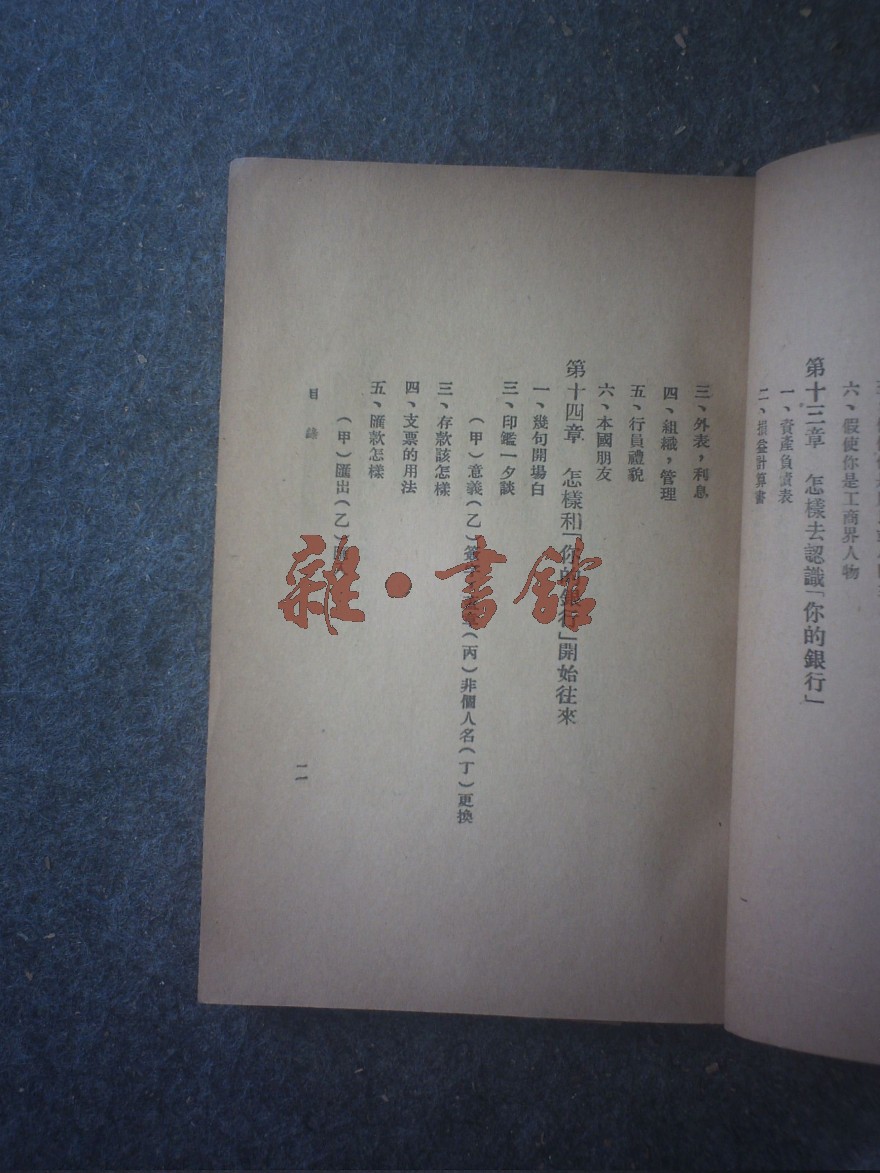 六、假使你是工商界人物
第十三章　怎樣去認識「你的銀行」
一、資產負債表
二、損益計算書
三、外表，利息
四、組織，管理
五、行員禮貌
六、本國朋友
第十四章　怎樣和「你的銀行」開始往來
一、幾句開場白
三、印鑑一夕談
（甲）意義（乙）（丙）非個人名（丁）更換
三、存款該怎樣
四、支票的用法
五、匯款怎樣
（甲）匯出（乙）
目錄
二
雜·書館